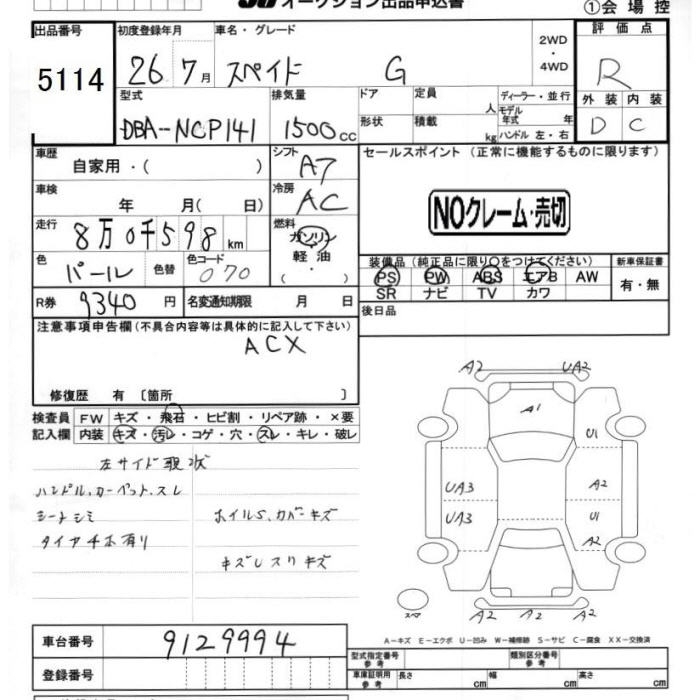 オークション出品申込書
①会場控
出品番号
初度登録年月
車名・グレード
2WD
・
4WD
評価点
5114
26年7月
スペイド
G
R
型式
排気量
ドア
定員
人
ディーラー・並行
外装
内装
DBA-NCP141
1500cc
形状
積載
kg
モデル年式
年
ハンドル 左・右
D
C
車歴
自家用・( )
シフト
A7
セールスポイント (正常に機能するものに限ります)
車検
年 月( 日)
冷房
AC
NOクレーム・売切
走行
8万0千598km
燃料
ガソリン
軽油
( ・ )
色
パール
色替
色コード
070
装備品(純正品に限り○をつけてください)
新車保証書
PS PW ABS エアB AW
SR ナビ TV カワ
有・無
R券
9340円
名変通知期限
月 日
後日品
注意事項申告欄(不具合内容等は具体的に記入して下さい)
ACX
修復歴 有 〔箇所 〕
検査員
記入欄
FW
キズ・飛石・ヒビ割・リペア跡・×要
内装
キズ・汚レ・コゲ・穴・スレ・キレ・破レ
左サイド
ハンドル、カーペット、スレ
シートシミ
ホイルS、カバーキズ
タイヤ
有り
キズUスリキズ
A2
UA2
A1
U1
UA3
A2
UA3
U1
A2
スペア
A2
A2
A2
A-キズ E-エクボ U-凹み W-補修跡 S-サビ C-腐食 XX-交換済
車台番号
9129994
型式指定番号
参考
類別区分番号
参考
登録番号
車庫証明用
参考
長さ
cm
幅
cm
高さ
cm